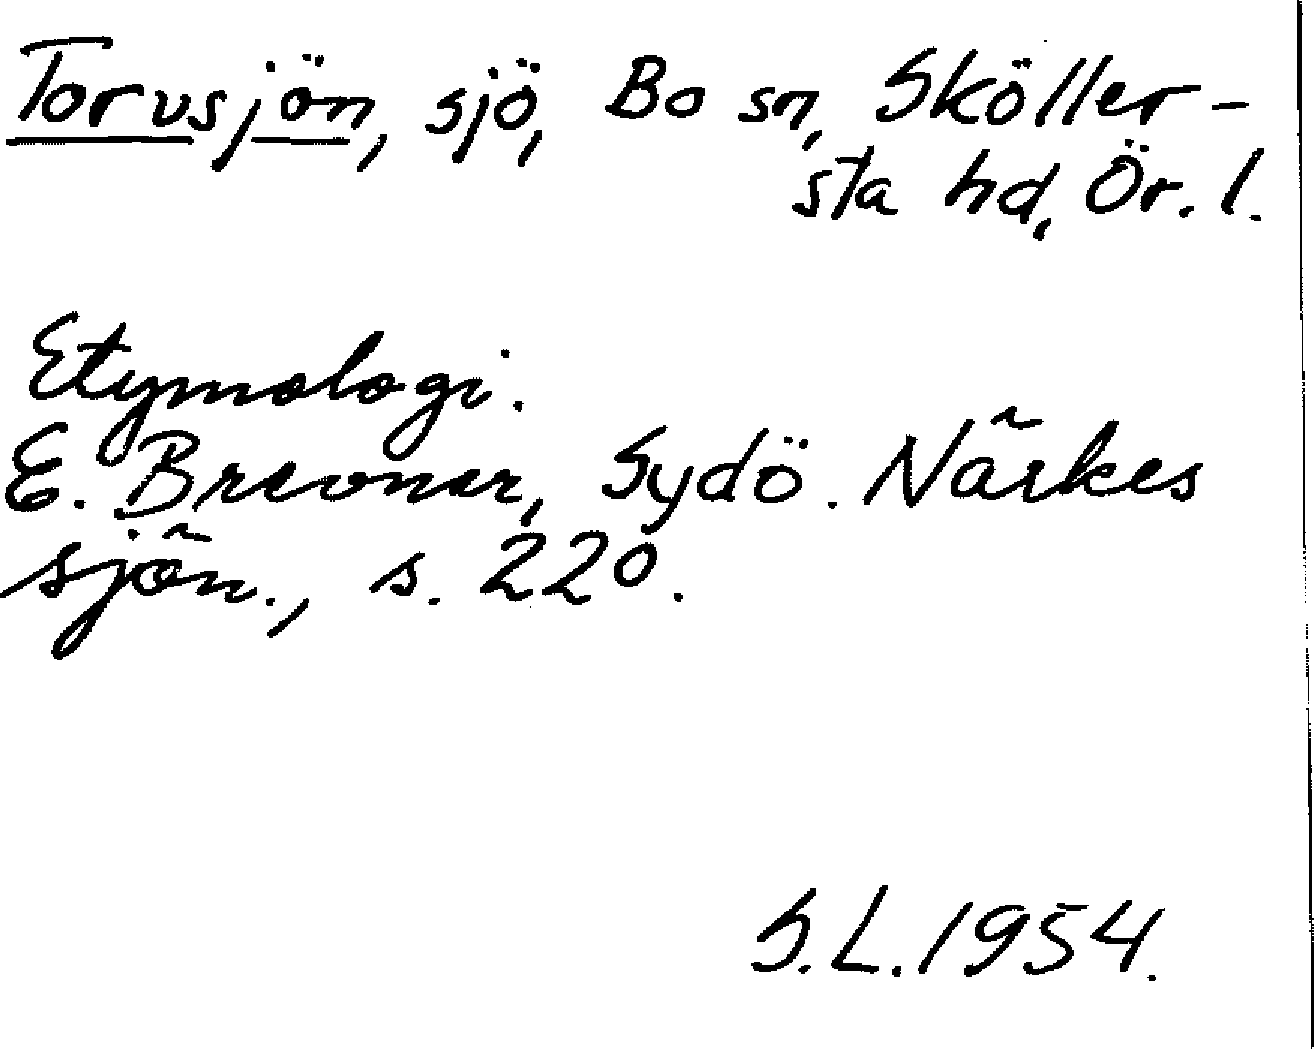 Torusjön, sjö, Bo sn, Sköller-
sta hd, Ör. l.
Etymologi.
E. Brevner, Sydö. Närkes
sjön., s. 220.
S.L. 1954.